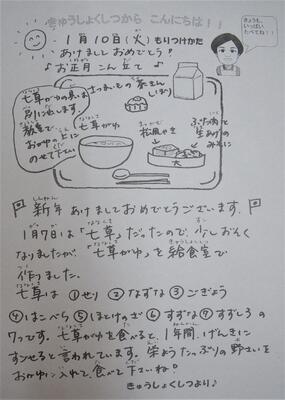 きゅうしょくしつから こんにちは!!
きょうも、
いっぱい
たべてね!!
1月10日(火)もりつけかた
あけまして おめでとう!
♪お正月こん立て♪
七草がゆの具は
別に入れます。
教室で
おかゆの上に
のせて下さい
さつまいもの茶きん
しぼり
七草がゆ
松風やき
ぶた肉と
生あげの
みそに
新年 あけましておめでとうございます。
1月7日は「七草」だったので、少しおそく
なりましたが、「七草がゆ」を給食室で
作りました。
七草は ①せり ②なずな ③ごぎょう
④はこべら ⑤ほとけのざ ⑥すずな ⑦すずしろ の
7つです。七草がゆを食べると、1年間、げんきに
すごせると言われています。栄ようたっぷりの野さいを
おかゆに入れて、食べて下さいね!
きゅうしょくしつより♪